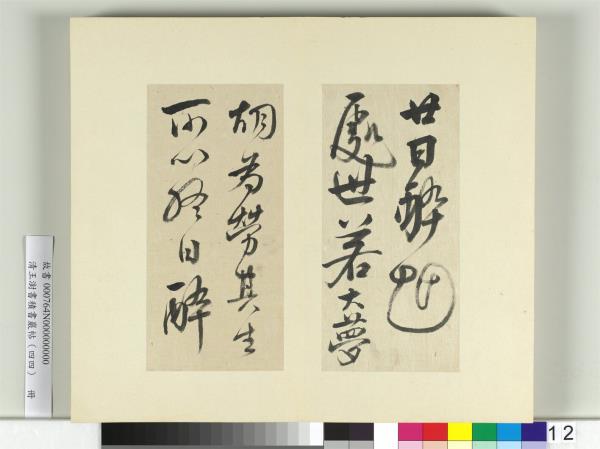 廿日醉
處世若大夢
胡為勞其生
所以終日醉
故書 000764N000000000
清王澍書積書巖帖（四四） 冊
12